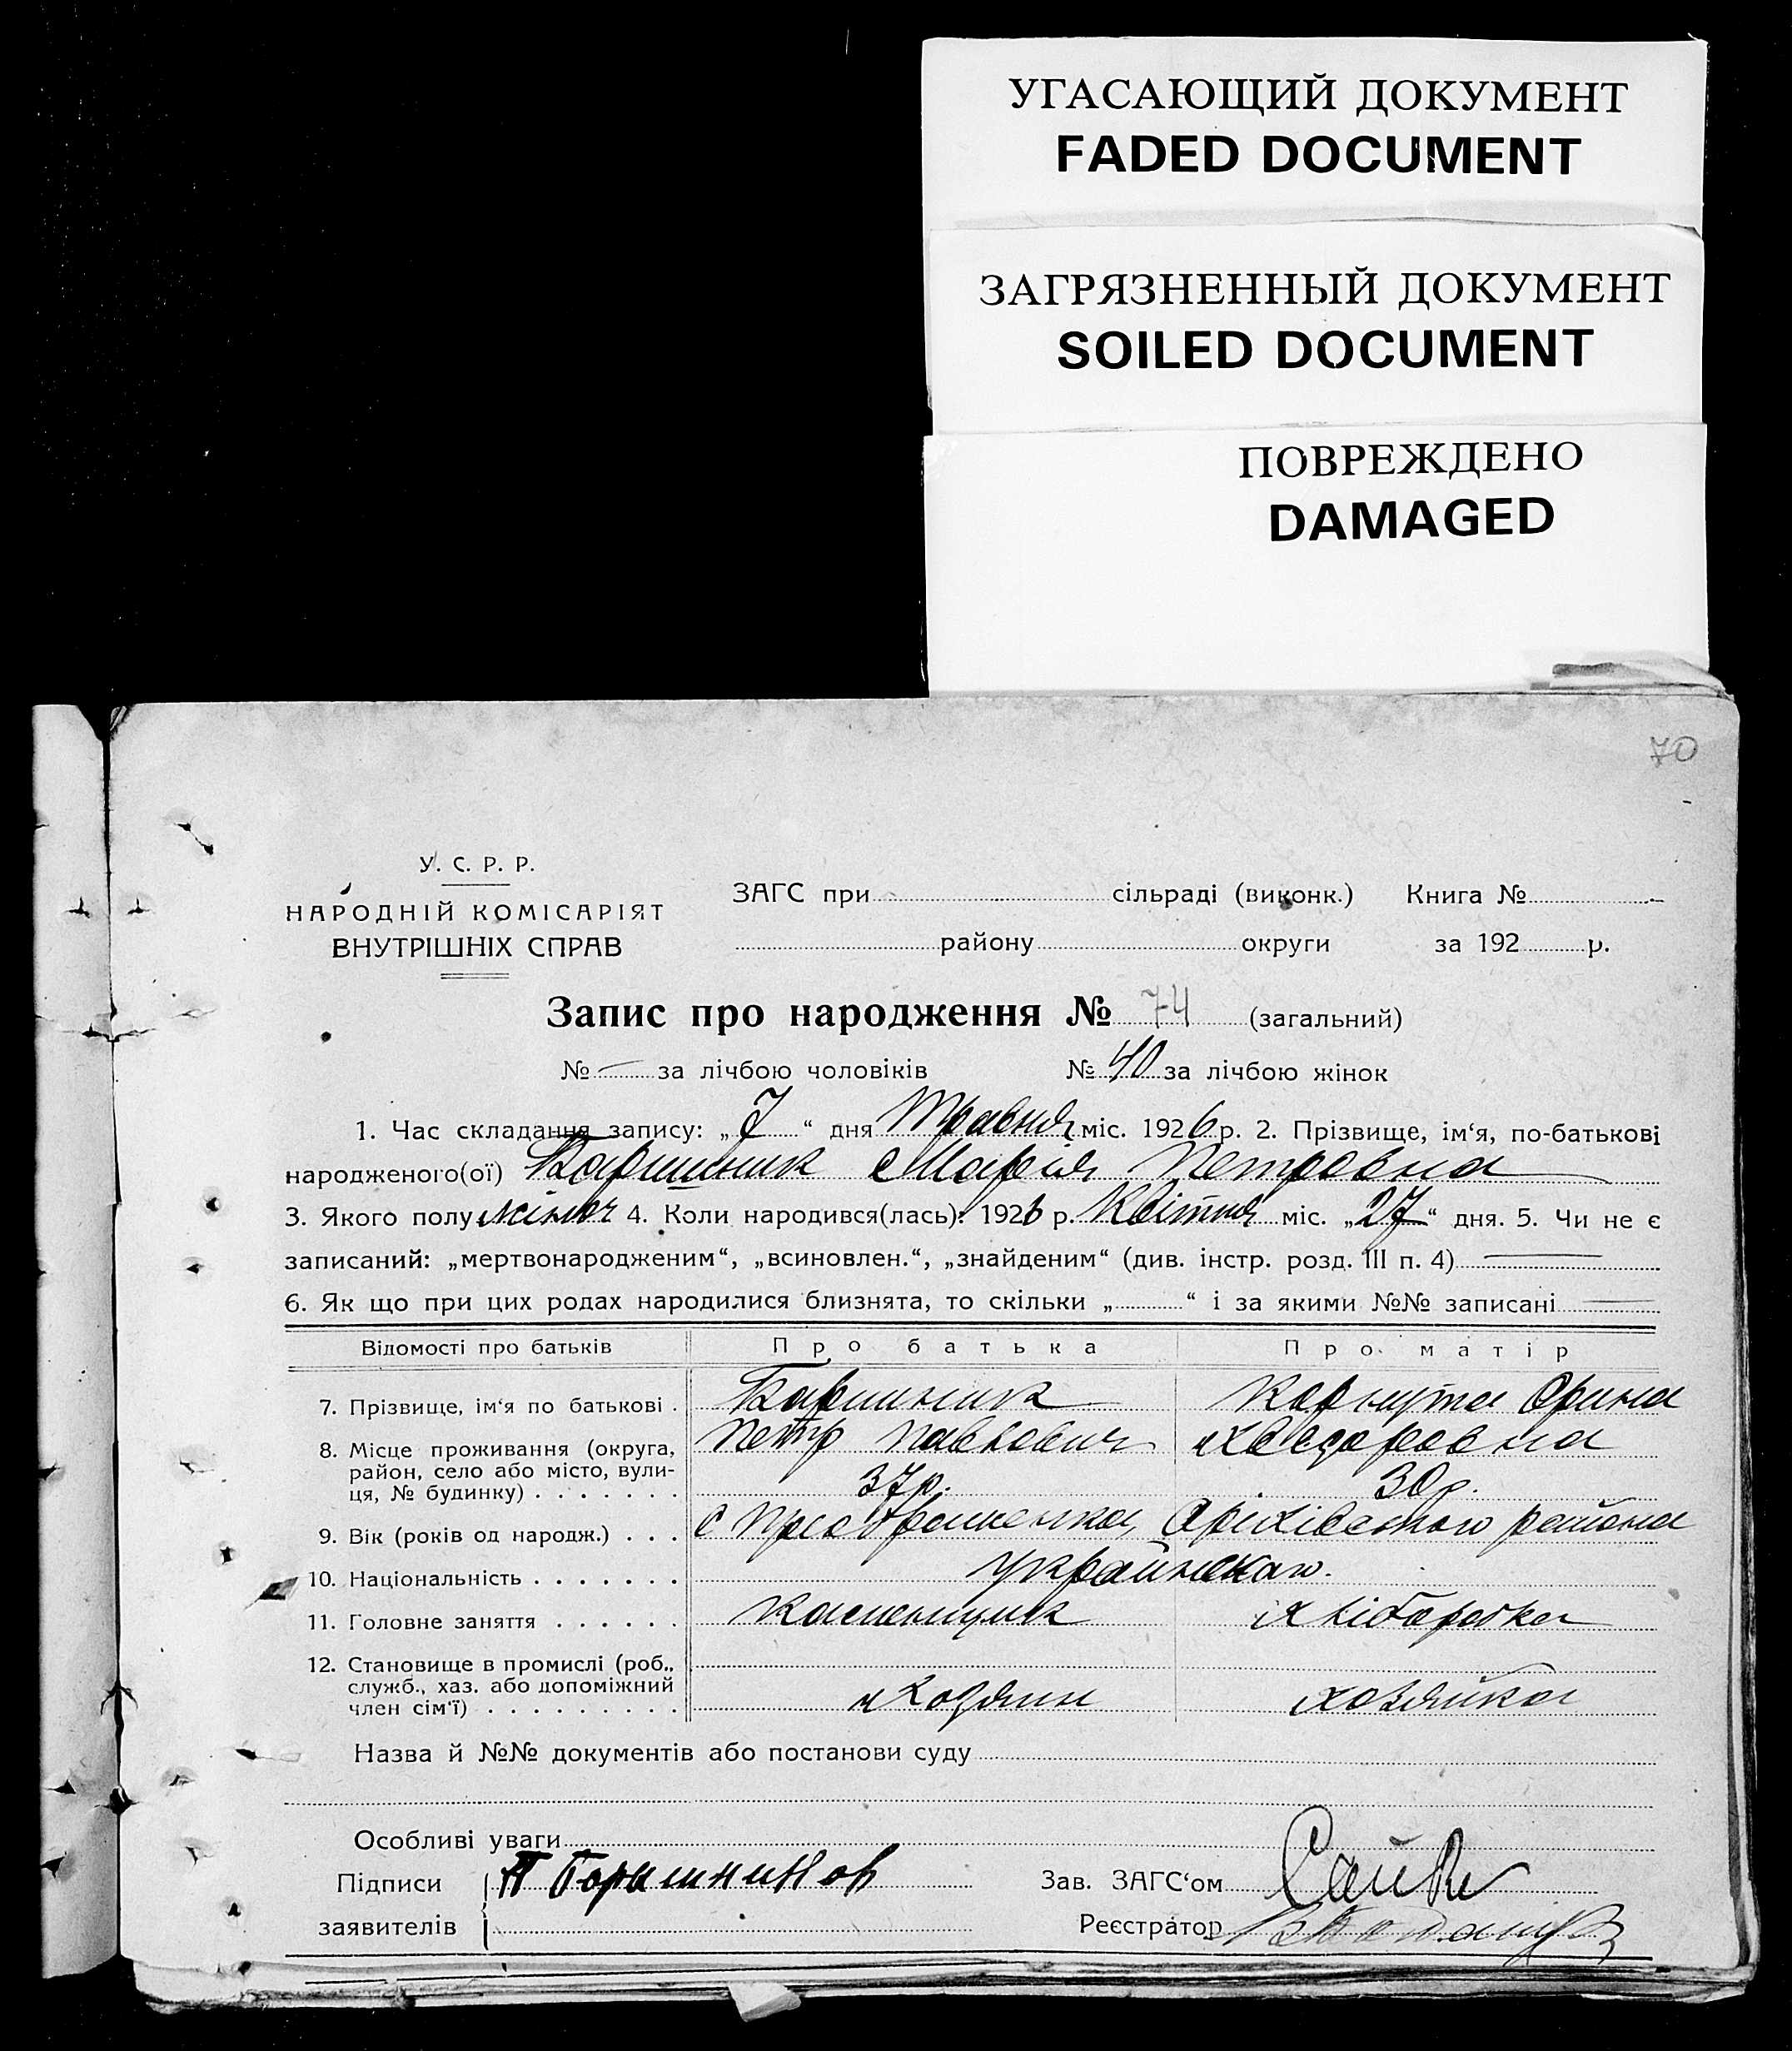 УГАСАЮЩИЙ ДОКУМЕНТ
FADED DOCUMENT
ЗАГРЯЗНЕННЫЙ ДОКУМЕНТ
SOILED DOCUMENT
ПОВРЕЖДЕНО
DAMAGED
70
У. С. Р. Р.
НАРОДНІЙ КОМІСАРІЯТ
ВНУТРІШНІХ СПРАВ
ЗАГС при сільраді (виконк.) Книга №
району округи за 192 р.
Запис про народження № 74 (загальний)
№ — за лічбою чоловіків № 40 за лічбою жінок
1. Час складання запису: „7“ дня Травня міс. 1926 р. 2. Прізвище, ім‘я, по-батькові
народженого(ої) Марія Петровна
3. Якого полу жіноч 4. Коли народився(лась): 1926 р. Квітня міс. „27“ дня. 5. Чи не є
записаний: „мертвонародженим“, „всиновлен.“, „знайденим“ (див. інстр. розд. III п. 4)
6. Як що при цих родах народилися близнята, то скільки „ “ і за якими №№ записані
Відомості про батьків Про батька Про матір
7. Прізвище, ім‘я по батькові . Корнута Орина
8. Місце проживання (округа, Петр Павлович Хведоровна
район, село або місто, вули-
ця, № будинку) . . . . . . . 37р. 30р.
9. Вік (років од народж.) . . . с Преображенка, Оріхівського района
10. Національність . . . . . . . Українская.
11. Головне заняття . . . . . . Каменщик Хліборобка
12. Становище в промислі (роб.,
служб., хаз. або допоміжний
член сім‘ї) . . . . . . . . . Хозяин хозяйка
Назва й №№ документів або постанови суду
Особливі уваги
Підписи Зав. ЗАГС‘ом
заявителів Реєстратор